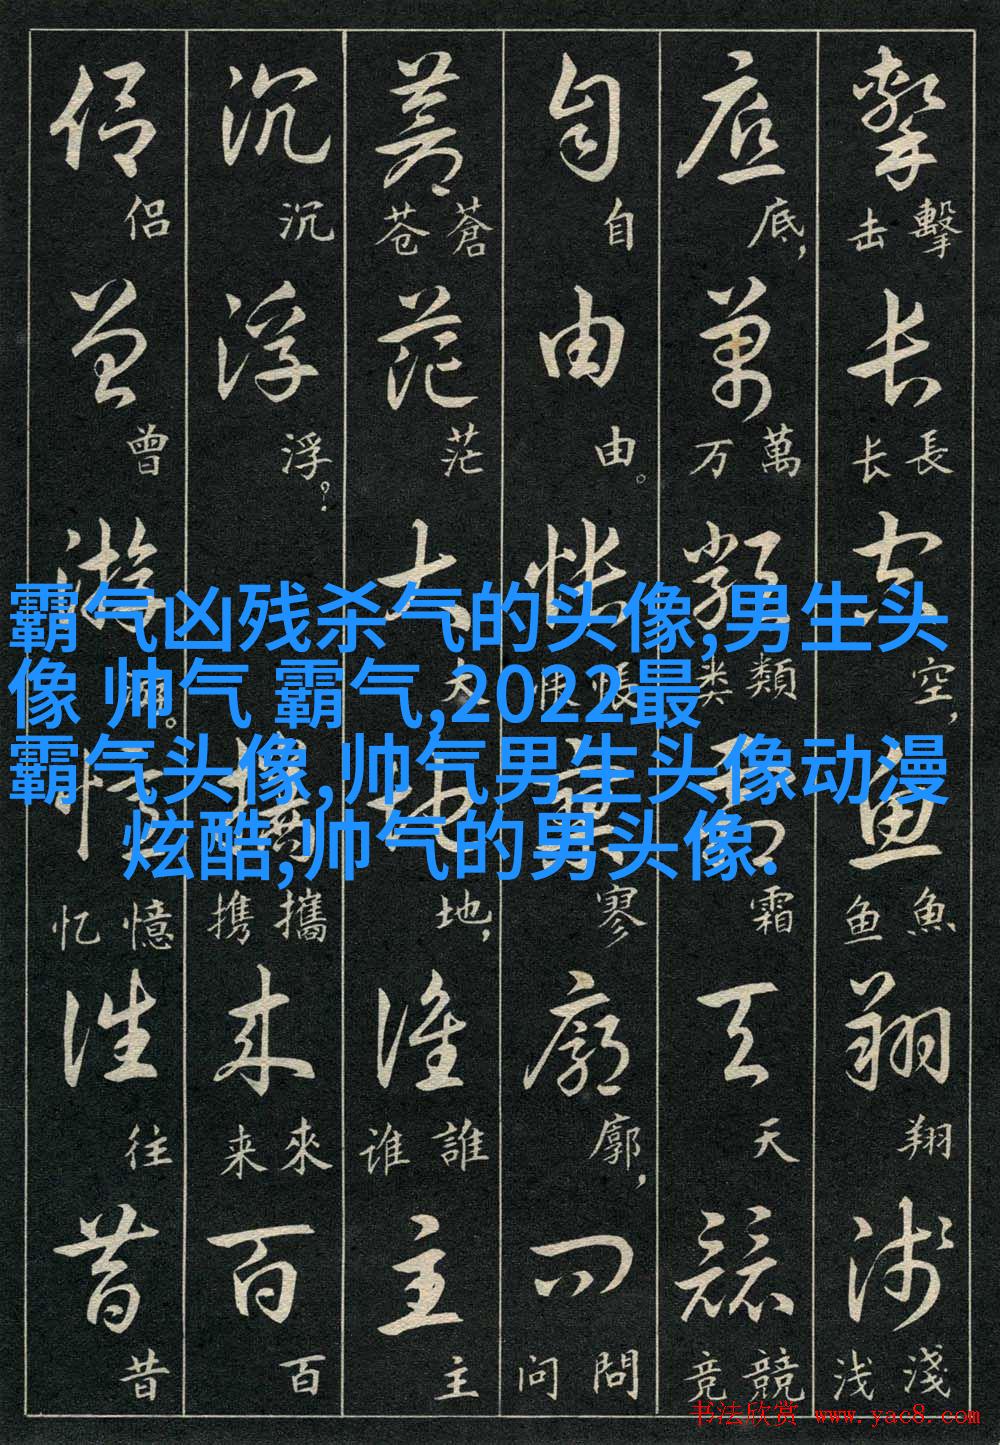 擊 擊 击 长 長 长 空 空, 鱼 魚 鱼 翔 翔 浅 淺 浅
底 底, 萬 萬 万 類 類 类 霜 霜 天 天 競 競 竞
自 自 由 由。 怅 悵 怅 寥 寥 廓 廓, 问 問 问
蒼 蒼 苍 茫 茫 大 大 地 地, 谁 誰 谁 主 主
沉 沉 浮 浮? 攜 攜 携 来 來 来 百 百
侣 侣 曾 曾 游 游。 忆 憶 忆 往 往 昔 昔
霸气凶残杀气的头像,男生头
像 帅气 霸气,2022最
霸气头像,帅气男生头像动漫
炫酷,帅气的男头像.
书法欣赏 www.yac8.com